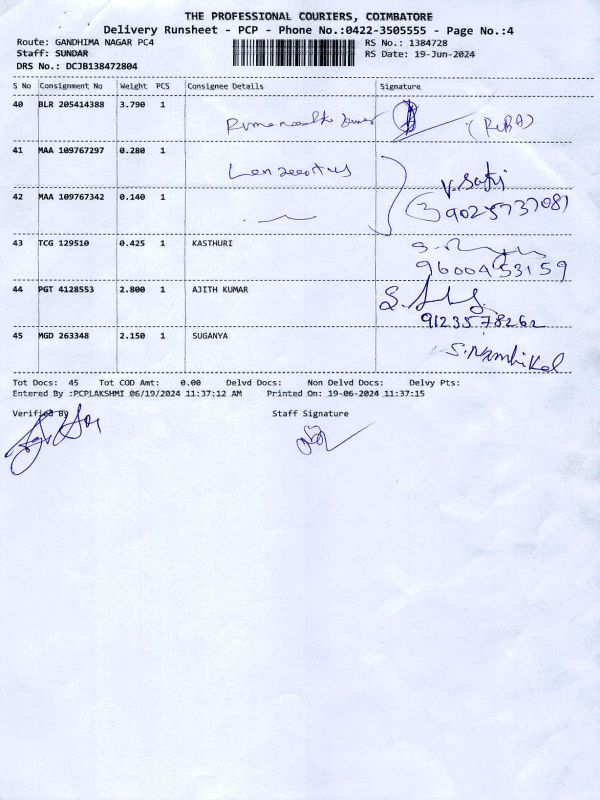 THE PROFESSIONAL COURIERS, COIMBATORE
Delivery Runsheet - PCP - Phone No.:0422-3505555 - Page No.:4
Route: GANDHIMA NAGAR PC4 RS No.: 1384728
Staff: SUNDAR RS Date: 19-Jun-2024
DRS No.: DCJB138472804
S No Consignment No Weight PCS Consignee Details Signature
40 BLR 205414388 3.790 1
41 MAA 109767297 0.280 1
V.
42 MAA 109767342 0.140 1
43 TCG 129510 0.425 1 KASTHURI
9600453159
44 PGT 4128553 2.800 1 AJITH KUMAR
9123578262
45 MGD 263348 2.150 1 SUGANYA
Tot Docs: 45 Tot COD Amt: 0.00 Delvd Docs: Non Delvd Docs: Delvy Pts:
Entered By :PCPLAKSHMI 06/19/2024 11:37:12 AM Printed On: 19-06-2024 11:37:15
Verified By Staff Signature